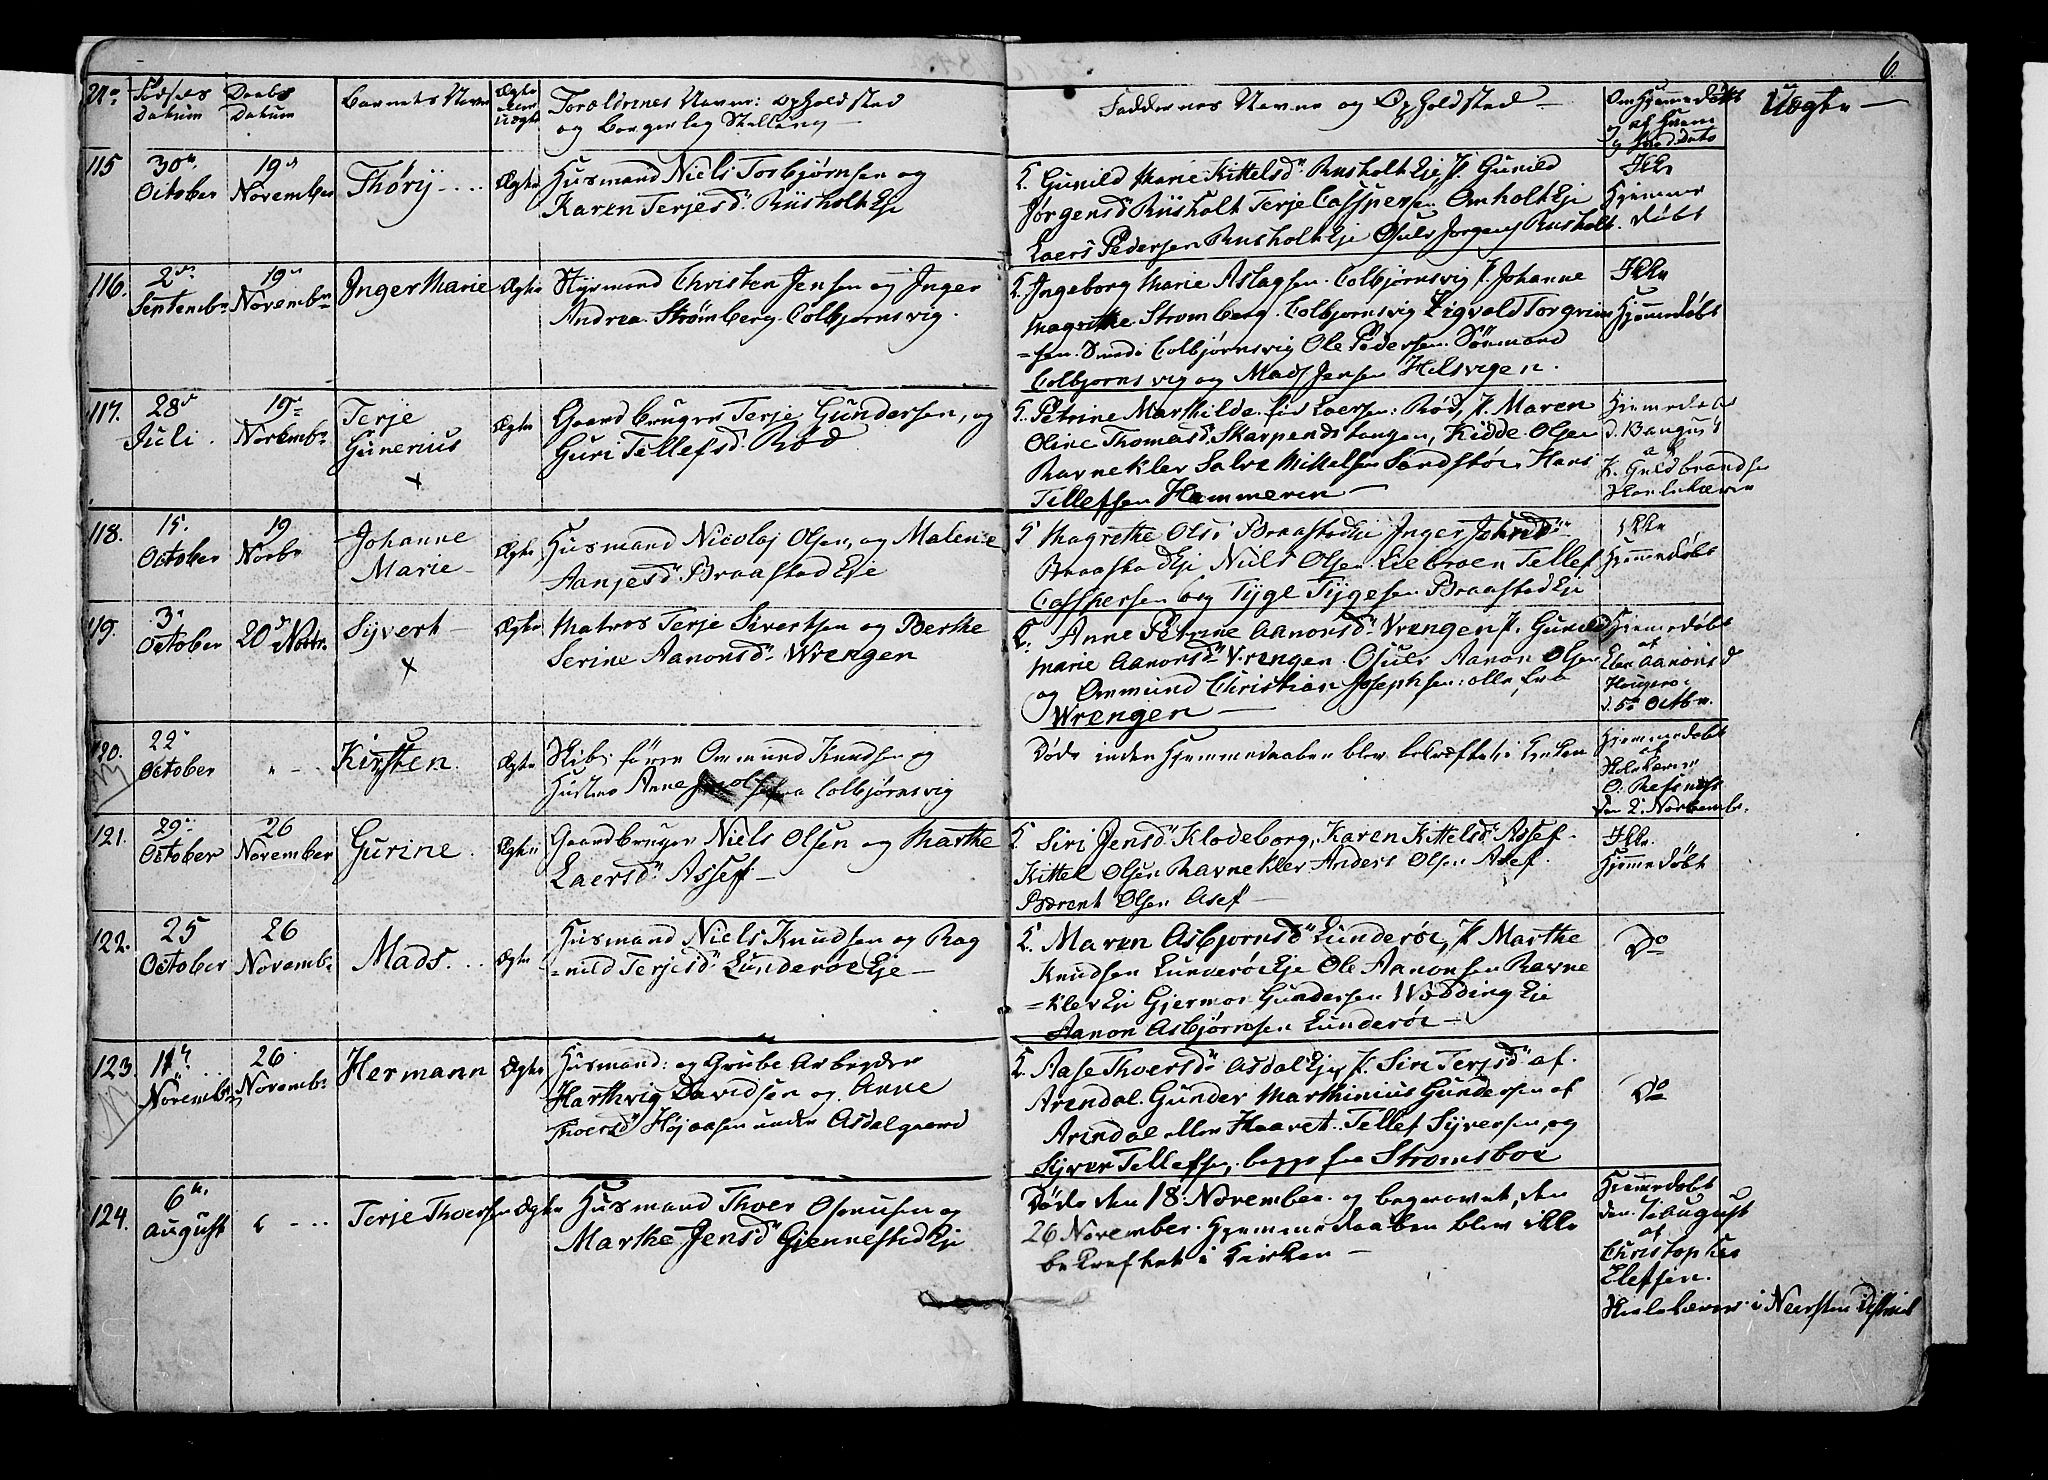 6.
No. Fødsels Datum Daabs Datum Barnets Navn Ægte eller Uægte Forældrenes Navne: Opholdsted
og Borgerlig Stilling
Faddernes Navne og Opholdsted
Om Hjemmedøbt
af Hvem
og hvad Dato
Uægte
115 30te October 19de November Thorij Ægte Husmand Niels Torbjørnsen og
Karen Terjesd. Riisholt Eje
K. Gunild Marie Kittelsd. Riisholt Eje, P. Gunild
Jørgensd. Riisholt Terje Caspersen Omholt Eje
Laers Pedersen Riisholt Eje Osuld Jorgens Riisholt.
Ikke
Hjemme
døbt
116. 2den Septembr 19de Novembr Inger Marie Ægte Styrmand Christen Jensen og Inger
Andrea Strømberg. Colbjornsvig.
K. Ingeborg Marie Aslagsen. Colbjørnsvig P. Johanne
Magrethe Stromberg. Colbjornsvig Sigvald Torgrim
=sen. Smed i Colbjørnsvig Ole Pedersen Sømand
Colbjorns vig og Mads Jensen Hilsvigen.
Ikke
Hjemmedøbt
117. 28de Juli. 19de Novembr Terje
Gunerius
x
Ægte Gaardbruger Terje Gundersen, og
Guri Tellefsd. Rød
K. Petrine Marthilde Laersen: Rød, P. Maren
Oline Thomasd. Skarpends tangen, Kidde Olsen
Ravneklev Salve Mikkelsen Sandstøe Hans
Tellefsen Hammeren
Hjemmedøbt
af
K. Guldbrandsen
Skolelærer
118. 15. October 19 Novbr Johanne
Marie
Ægte Husmand Nicolaj Olsen, og Malene
Aanjesd. Braastad Eje
K Magrethe Ols: Braastad Eje Inger Johnsd.
Braastad Eje Niels Olsen Liebroen Tellef
Caspersen og Tyge Tygesen Braastad Eje
Ikke
Hjemmedøbt
119. 3de October 20de Novbr. Syvert
x
Ægte Matros Terje Sivertsen og Berthe
Serine Aanonsd. Wrengen
K. Anne Petrine Aanonsd. Vrengen P. Gunild
Marie Aanonsd. Vrengen. Osuld Aanon Olsen
og Ommund Christian Josephsen: alle fra
Wrengen
Hjemmedøbt
af
Elen Aanonsd
d. 5te Octbr.
120. 22de October " - Kirsten. Ægte Skibsfører Ommund Knudsen og
Hustru Anne Colbjørnsvig
Døde inden Hjemmedaaben blev bekræftet i Kirken
Hjemmedøbt
af
Skolelærer
O. Refsnes
den 2. Novembr.
121. 29de October 26 November Gurine. Ægte Gaardbruger Niels Olsen og Marthe
Laersd. Assef
K Siri Jensd. Klodeborg, Karen Kittelsd. Assef.
Kittel Olsen Ravneklev Anders Olsen Asef.
Bærent Olsen Asef
Ikke
Hjemmedøbt
122. 25 October 26 Novembr Mads. Ægte Husmand Niels Knudsen og Rag
=nild Terjesd. Lunderøe Eje
K. Maren Asbjornsd. Lunderøe, P. Marthe
Knudsen Lunderøe Eje Ole Aanonsen Ravne
=klev Eje Gjermon Gundersen Wædding Eje
Aanon Asbjørnsen Lunderøe
Do
123. 11te Novembr 26 Novembr Hermann Ægte Husmand: og Grube Arbeyder
Harthvig Davidsen og Anne
Thoersd. Højaasen under Asdalgaard
K. Aase Thoersd. Asdal Eje, P. Siri Terjesd. af.
Arendal. Gunder Marthinius Gundersen af
Arindal eller Haavet. Tellef Syversen og
Syver Tellefsen, begge fra Stromsboe
Do
124. 6te August " - Terje Thoersen Ægte Husmand Thoer Osmusen og
Marthe Jensd. Gjennestad Eje
Døde den 18. November og begravet den
26 November. Hjemmedaaben blev ikke
bekreftet i Kirken
Hjemmedøbt
den 7. August
af
Christopher
Elefsen.
Skolelærer i Neersten District